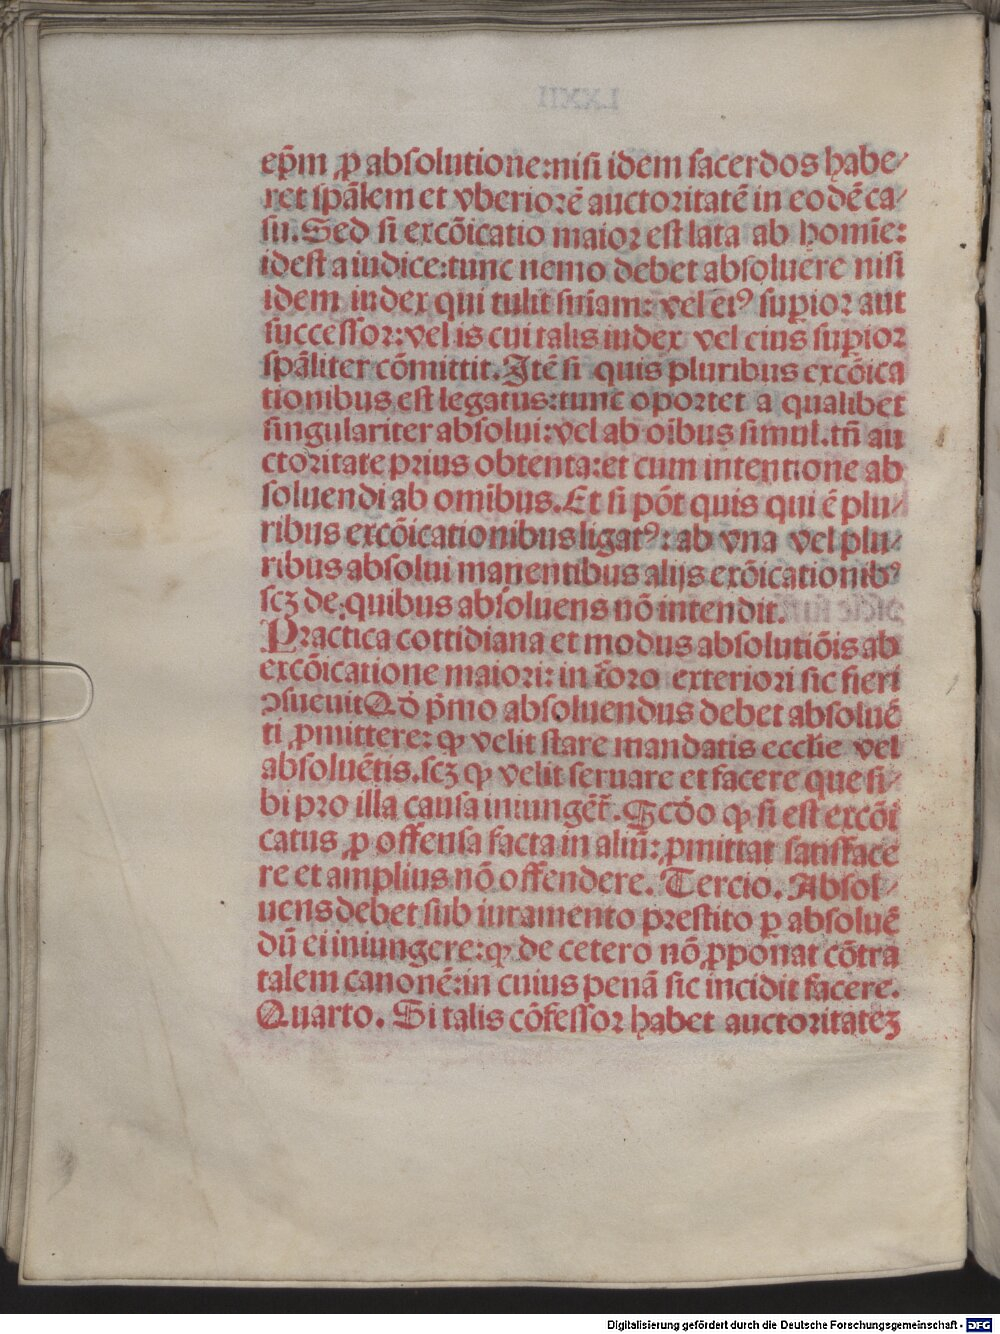 ep̄m ꝓ absolutione:nisi idem sacerdos habe⸗
ret sp̄alem et vberiorē auctoritatē in eo dē ca⸗
su. Sed si excōicatio maior est lata ab homīe:
idest a iudice:tunc nemo debet absoluere nisi
idem iudex qui tulit sn̄iam: vel eiꝰ suꝑior aut
successor:vel is cui talis iudex vel eius suꝑior
sp̄aliter cōmittit. Itē si quis pluribus excōica
tionibus est legatus:tunc oportet a qualibet
singulariter absolui:vel ab oībus simul. tn̄ au
ctoritate prius obtenta:et cum intentione ab
soluendi ab omībus. Et si pōt quis qui ē plu⸗
ribus excōicationibus ligatꝰ: ab vna vel plu⸗
ribus absolui manentibus alijs exōicationibꝰ
scꝫ de quibus absoluens nō intendit.
Practica cottidiana et modus absolutiōis ab
excōicatione maiori: in foro exteriori sic fieri
ꝯsueuit Qd̄ p̄mo absoluendus debet absoluē
ti ꝓmittere: ꝙ velit stare mandatis ecclie vel
absoluētis. scꝫ ꝙ velit seruare et facere que si⸗
bi pro illa causa iniungēt̄. Scd̄o ꝙ si est excōi
catus ꝓ offensa facta in aliū: ꝓmittat satisface
re et amplius nō offendere. Tercio. Absol⸗
uens debet sub iuramento prestito ꝑ absoluē
dū ei iniungere: ꝙ de cetero nō ꝓponat cōtra
talem canonē: in cuius penā sic incidit facere.
Quarto. Si talis cōfessor habet auctoritateꝫ
Digitalisierung gefördert durch die Deutsche Forschungsgemeinschaft - DFG